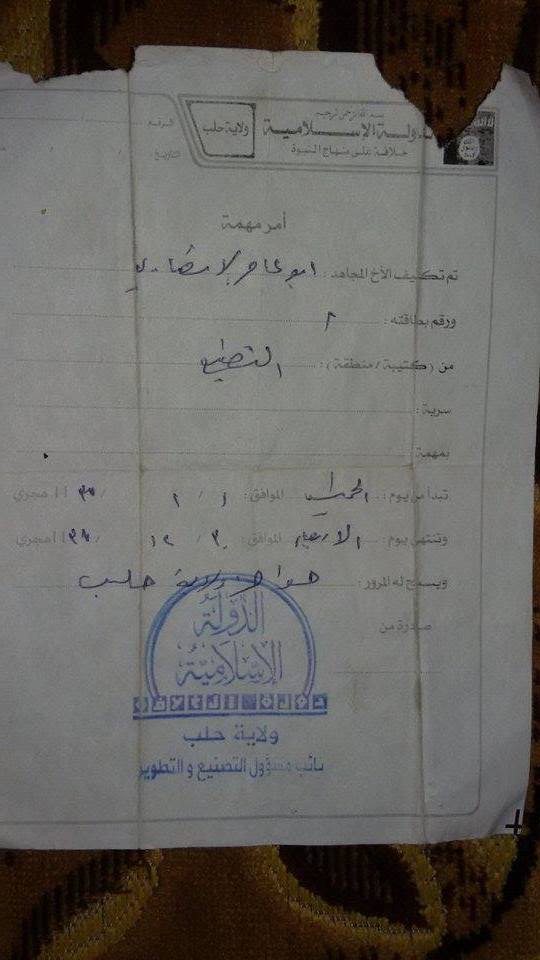 بسم الله الرحمن الرحيم
الدولة الإسلامية
خلافة على منهاج النبوة
ولاية حلب
الرقم
التاريخ
أمر مهمة
تم تكليف الأخ المجاهد : ابو عامر الانصاري
ورقم بطاقته : ٢
من ( كتيبة / منطقة ) : التصنيع
سرية :
بمهمة
تبدأ من يوم : الموافق : ١ / ١ / هجري
وتنتهي يوم : الاربعاء الموافق : ٣٠ / ١٢ / هجري
ويسمح له المرور : حواجز ولاية حلب
صادرة من
الدولة
الإسلامية
ولاية حلب
نائب مسؤول التصنيع والتطوير